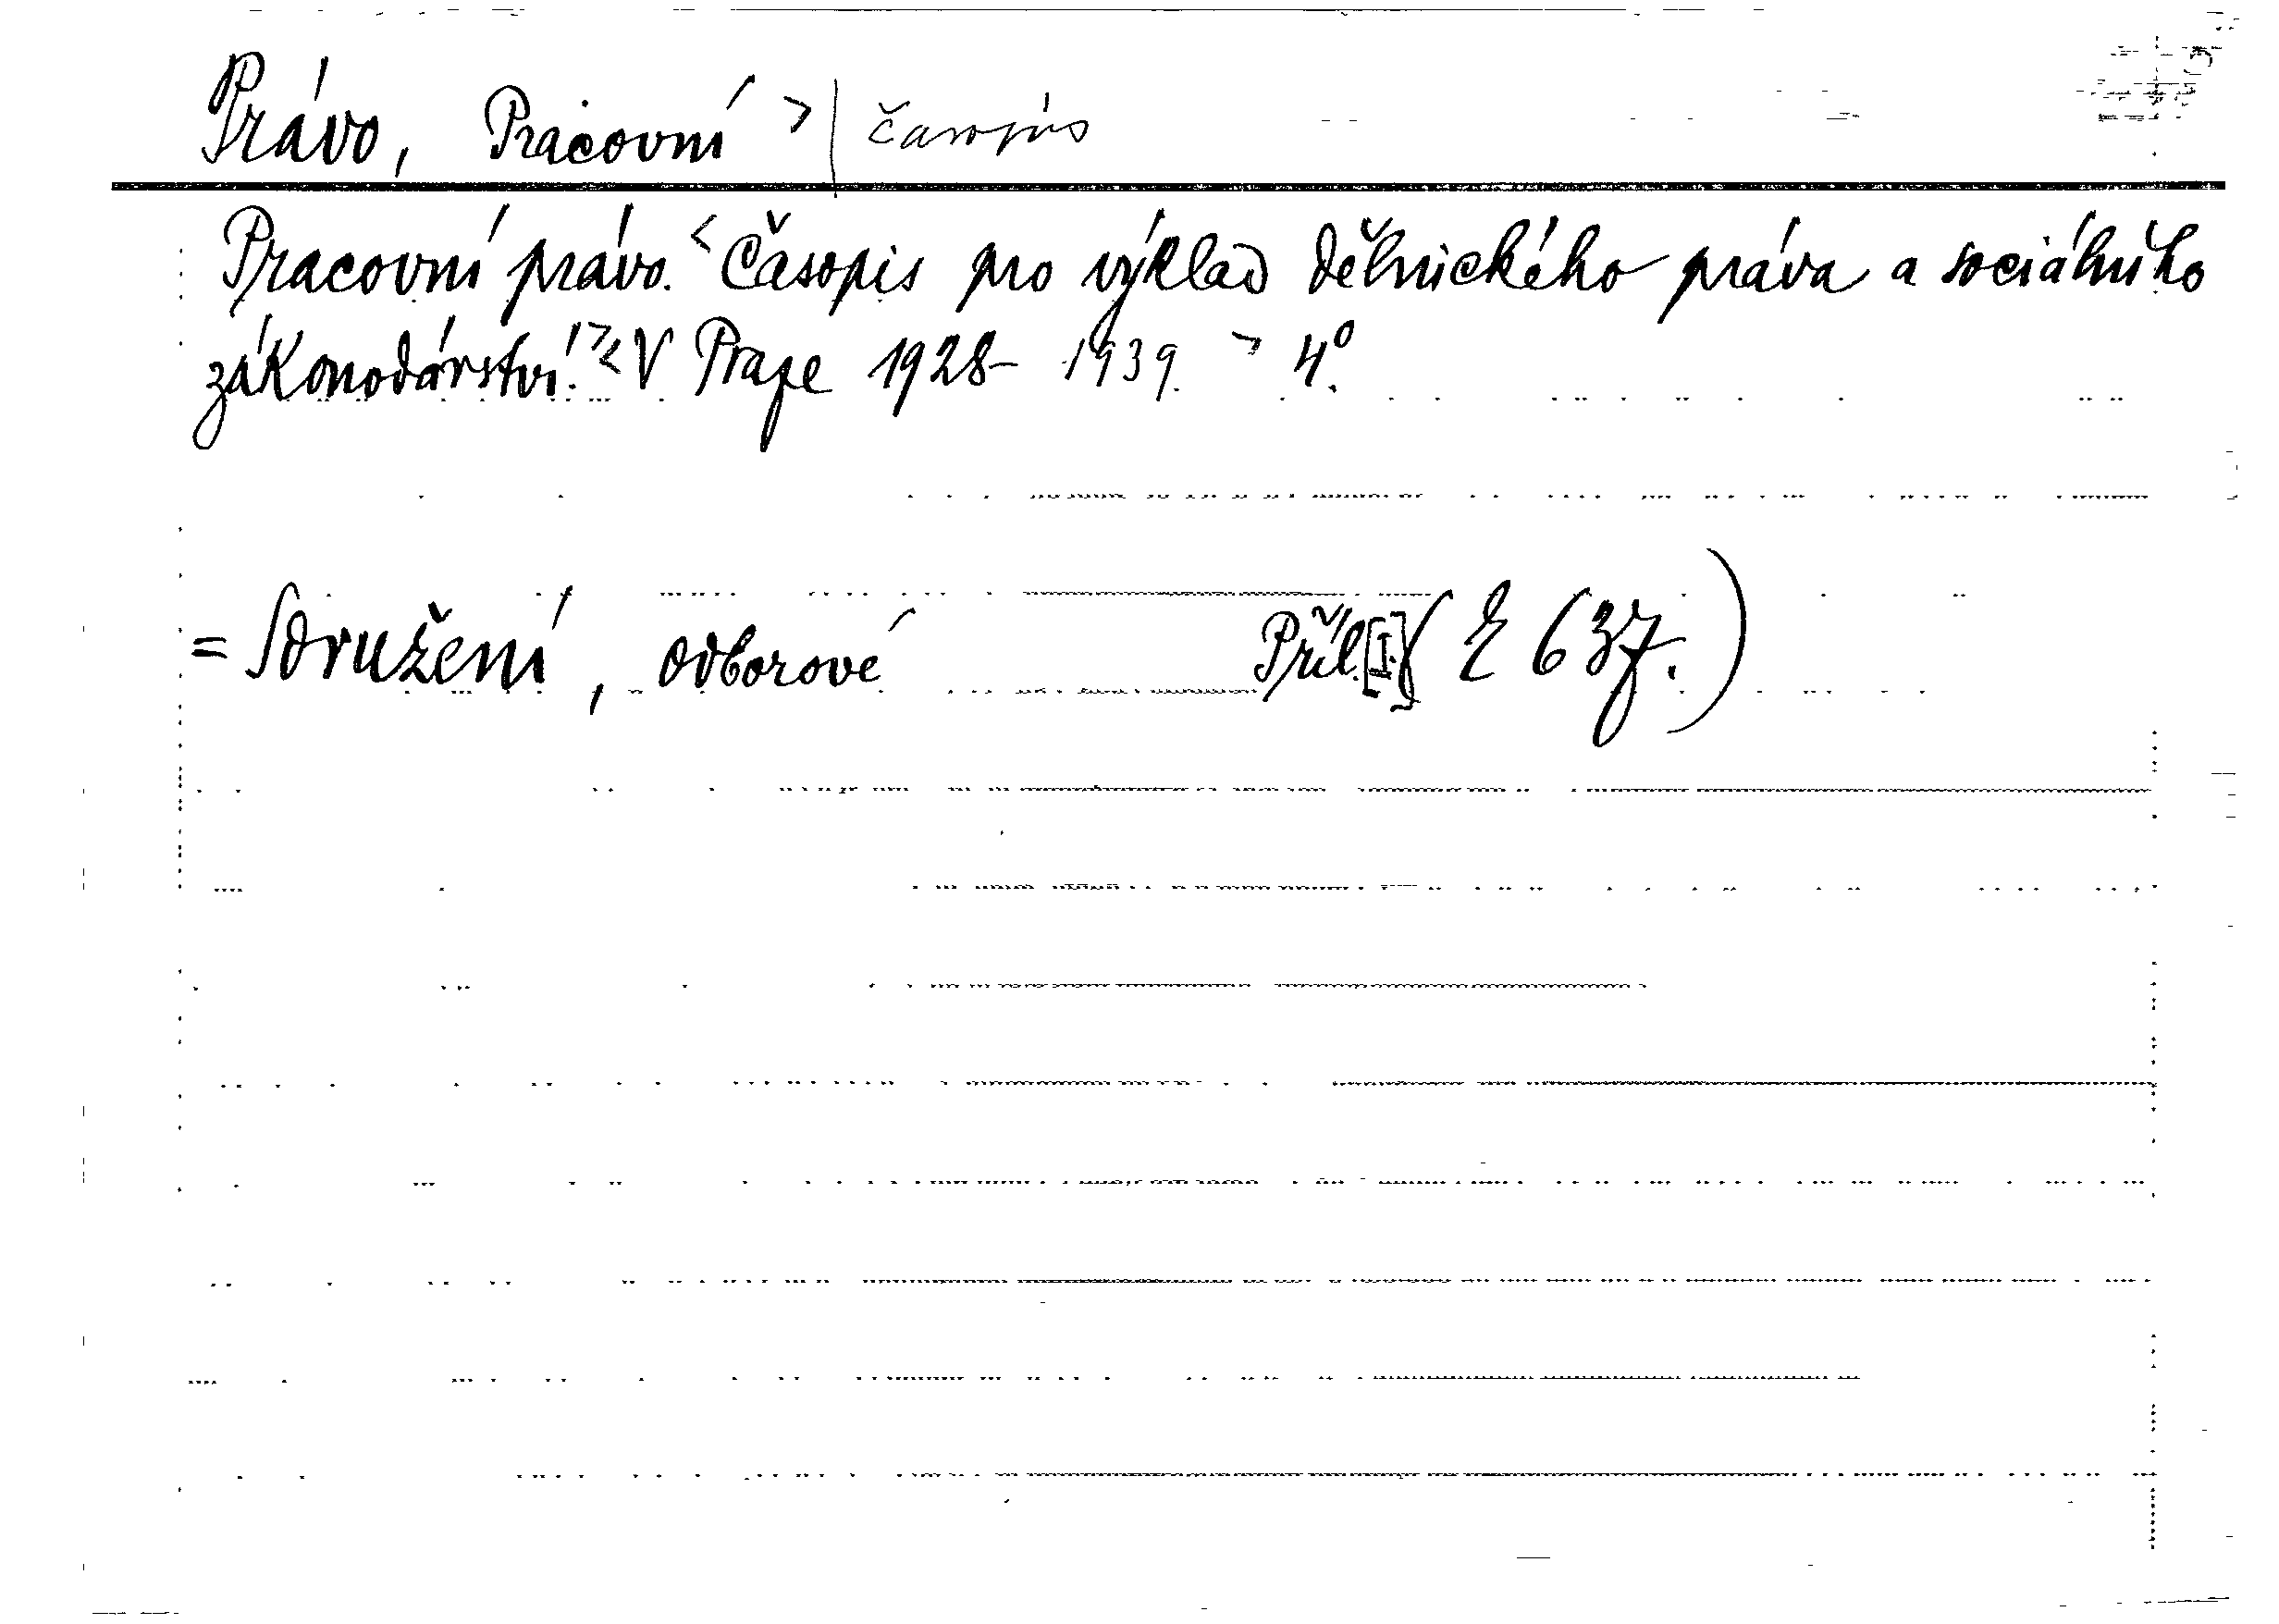 Právo, Pracovní > | časopis
Pracovní právo. < Časopis pro výklad dělnického práva a sociálního
zákonodárství. > < V Praze 1928- 1939. > 4°.
= Sdružení, odborové Příl. [I.] ( E 637. )